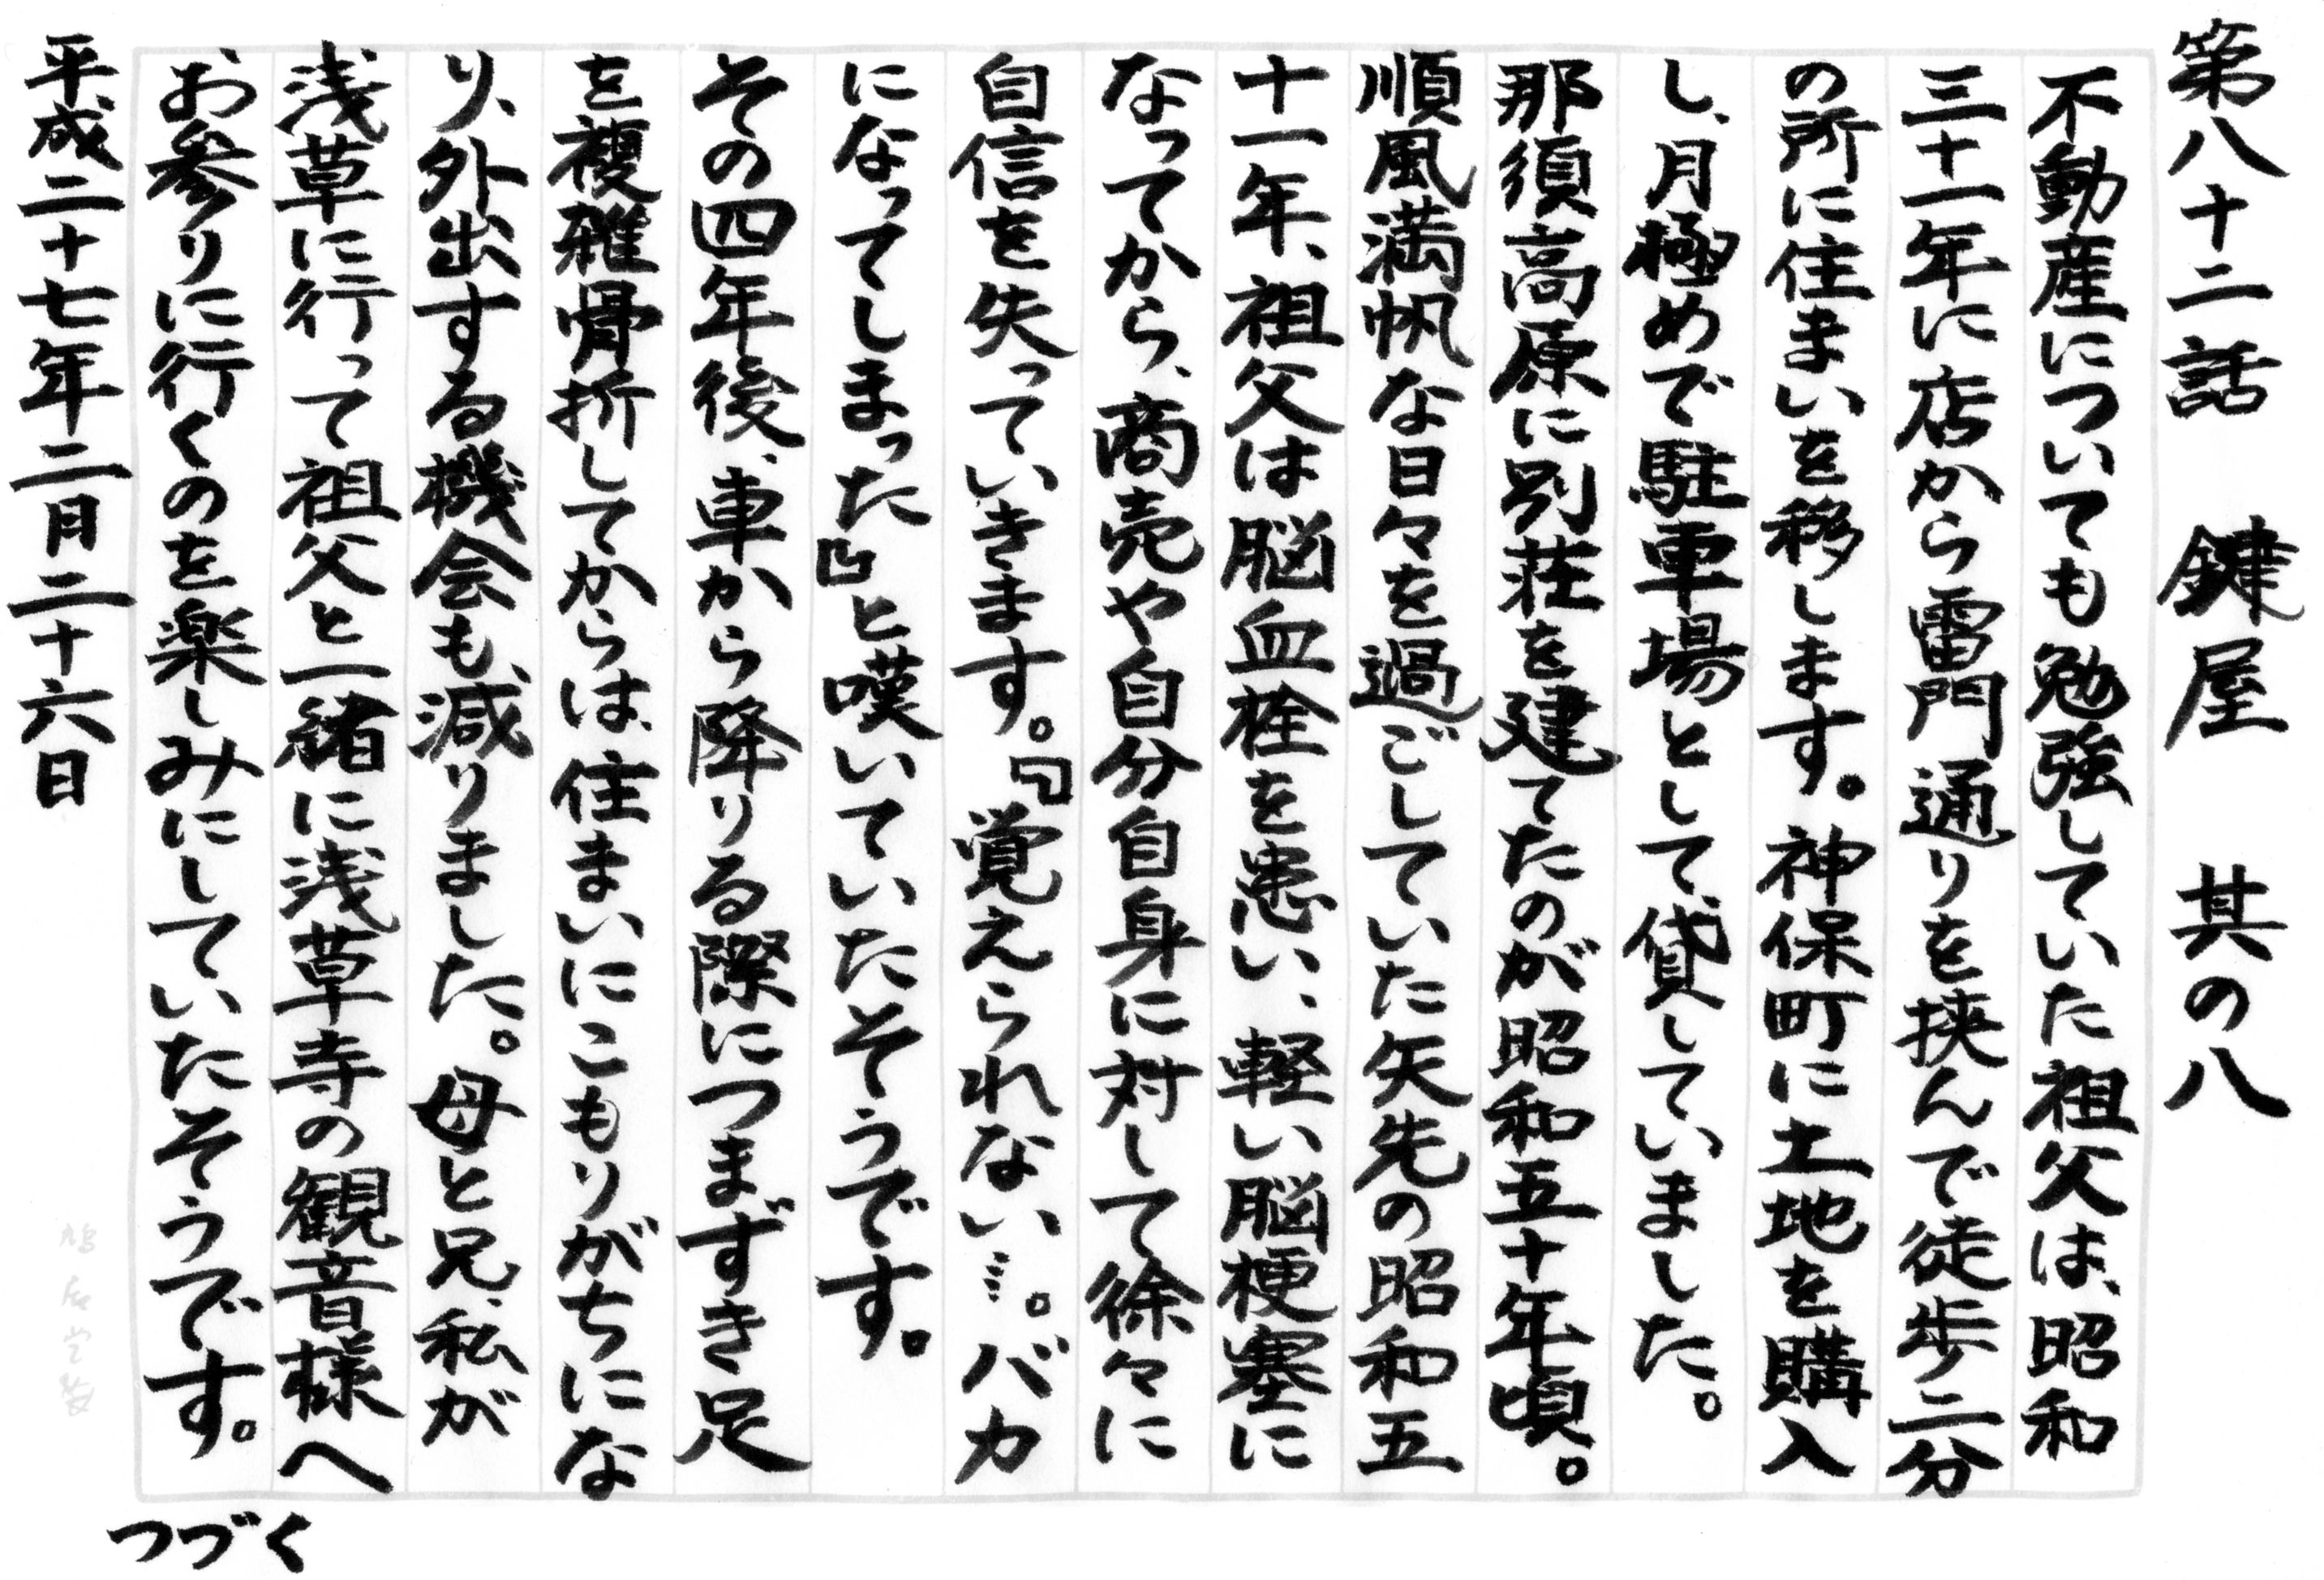 第八十二話　鍵屋　其の八
不動産についても勉強していた祖父は、昭和
三十一年に店から雷門通りを挟んで徒歩二分
の所に住まいを移します。神保町に土地を購入
し、月極めで駐車場として、貸していました。
那須高原に別荘を建てたのが昭和五十年頃。
順風満帆な日々を過ごしていた矢先の昭和五
十一年、祖父は脳血栓を患い、軽い脳梗塞に
なってから、商売や自分自身に対して徐々に
自信を失っていきます。『覚えられない…。バカ
になってしまった』と嘆いていたそうです。
その四年後、車から降りる際につまずき、足
を複雑骨折してからは、住まいにこもりがちにな
り、外出する機会も、減りました。母と兄、私が
浅草に行って祖父と一緒に浅草寺の観音様へ
お参りに行くのを楽しみにしていたそうです。
つづく
平成二十七年二月二十六日